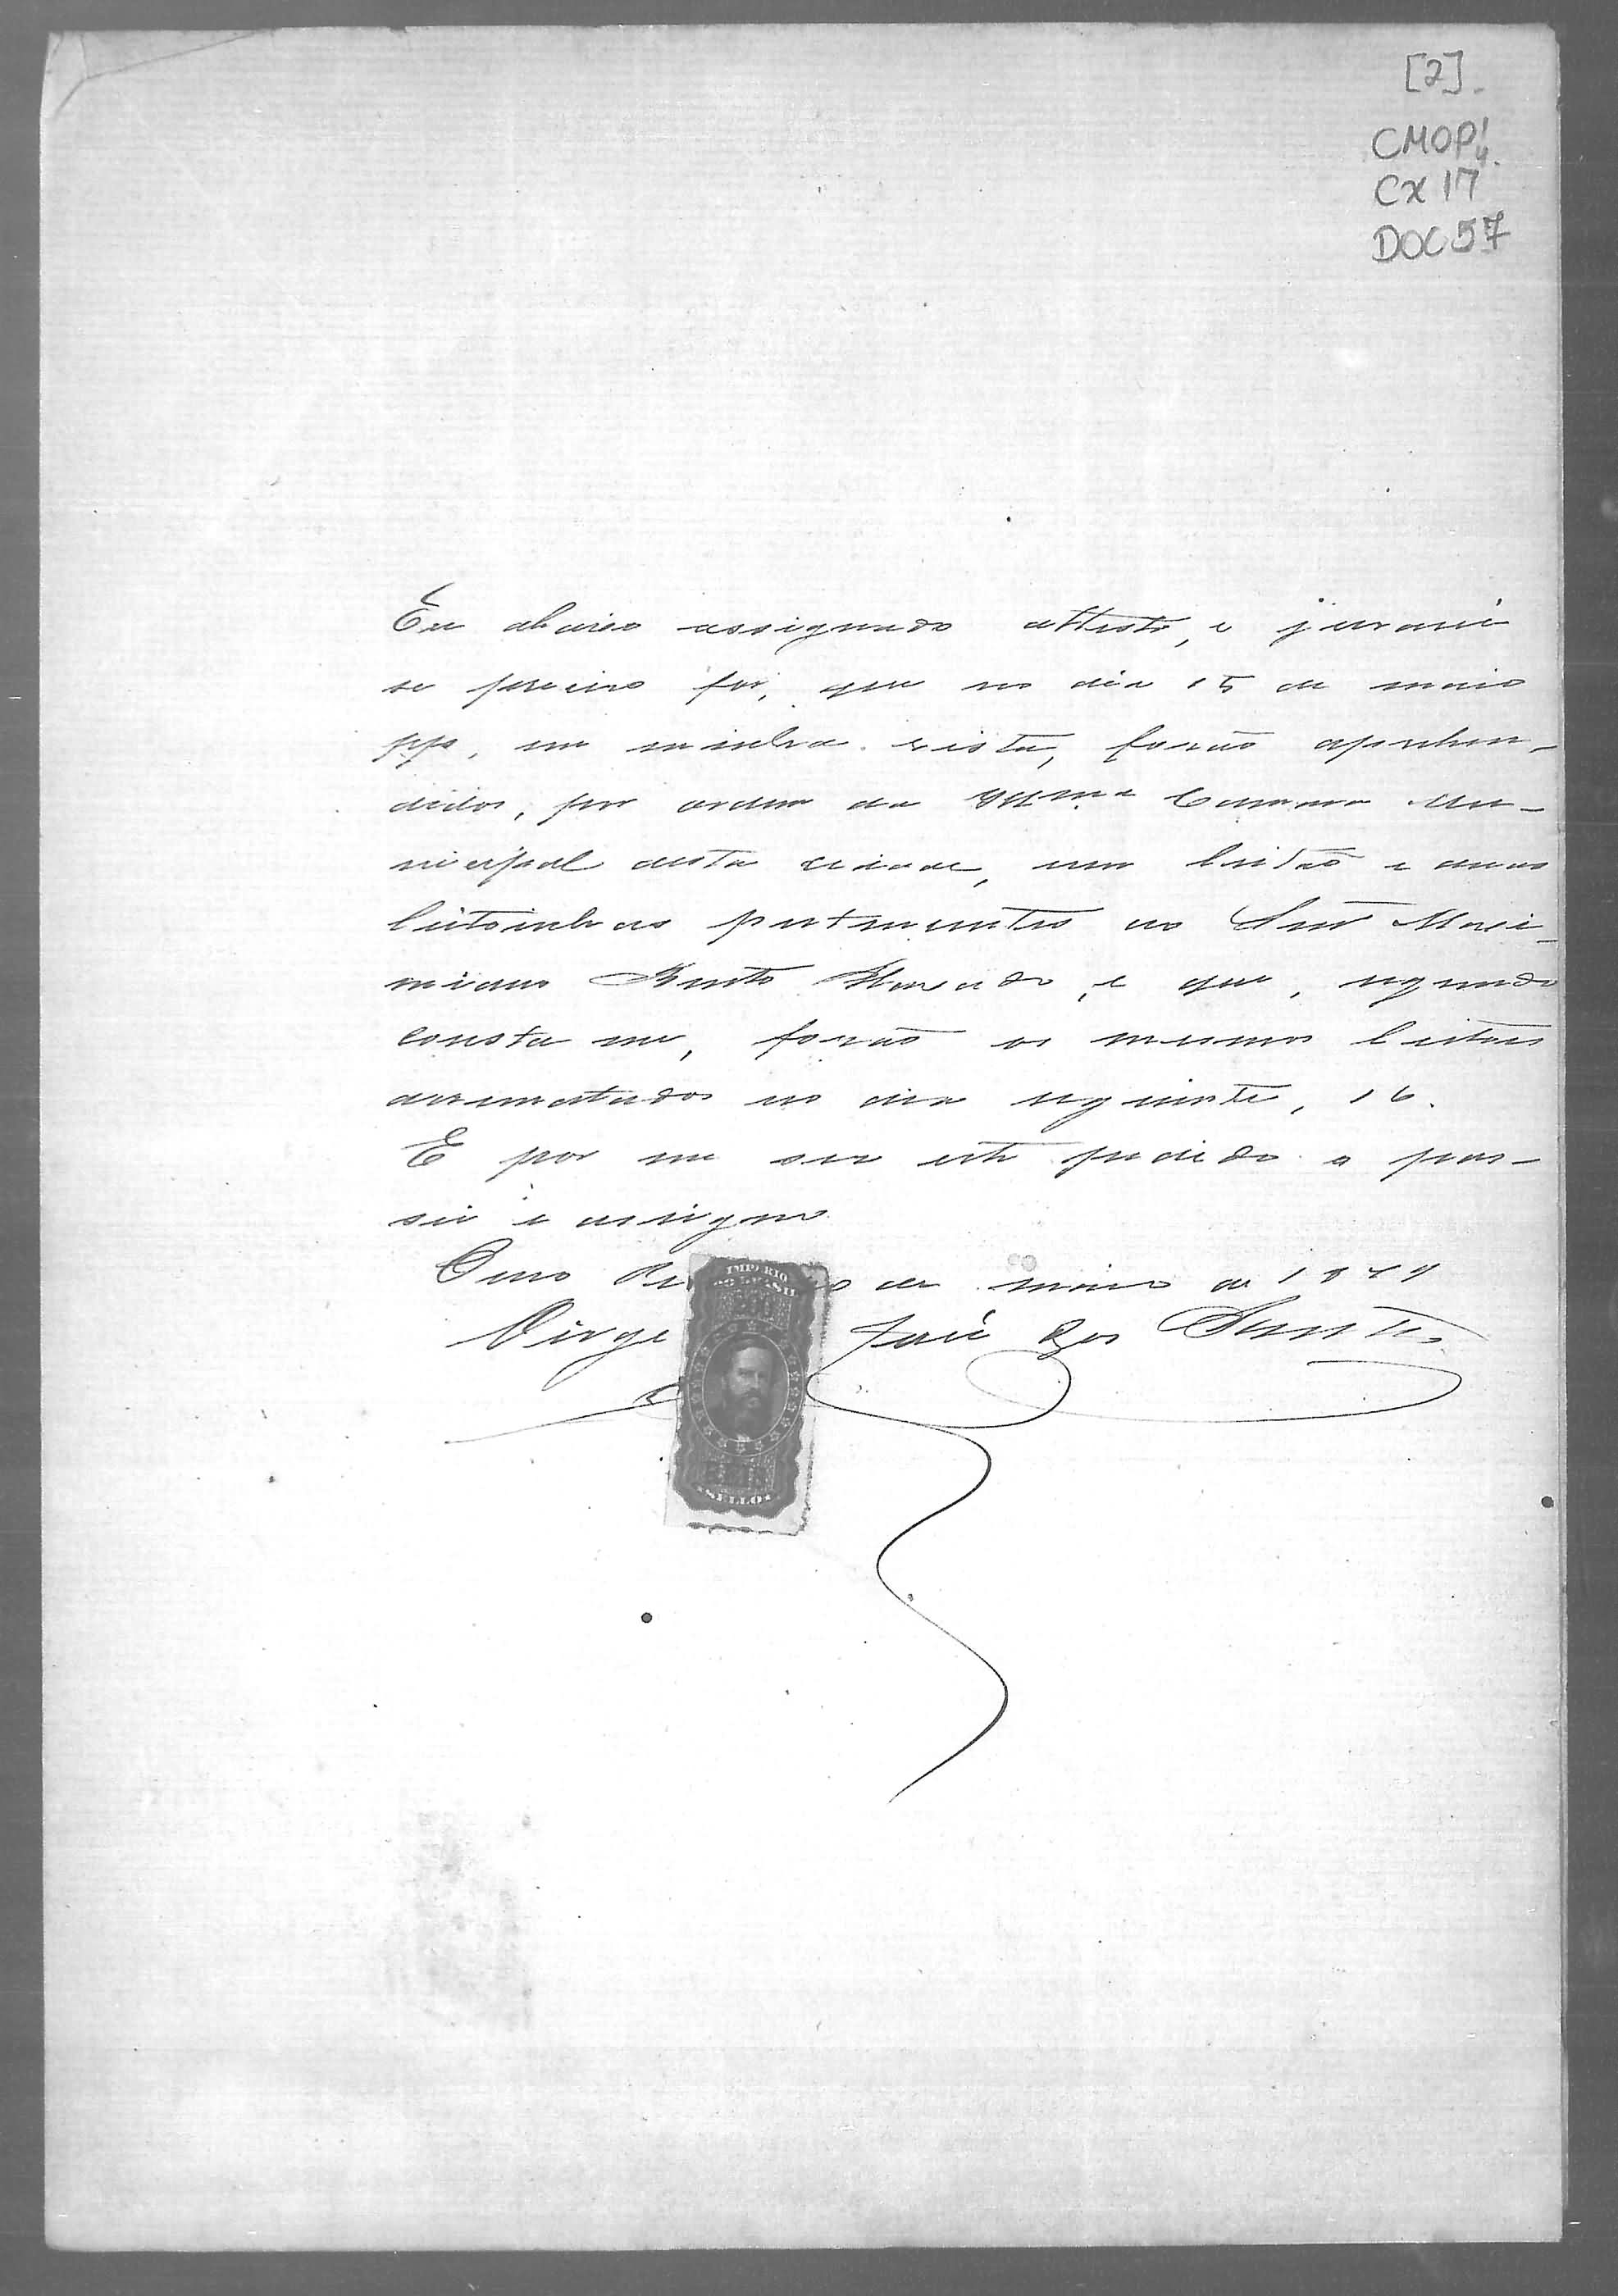 [2].
CMOP
CX 17
DOC 57
Eu abaixo assignado attesto, e jurarei
se preciso for, que no dia 15 de maio
pp, em minha vista, forão aprehen-
didos, por ordem da Illma Camara Mu-
nicipal desta cidade, um leitão e duas
leitoinhas pertencentes ao Snr Maxi-
miano Bento, e que, segundo
consta me, forão os mesmos leitões
arrematados no dia seguinte, 16.
E por me ser este pedido o pas-
sei e assigno
Ouro de maio de 18
José dos Santos
IMPERIO
DO BRASIL
200
SELLO